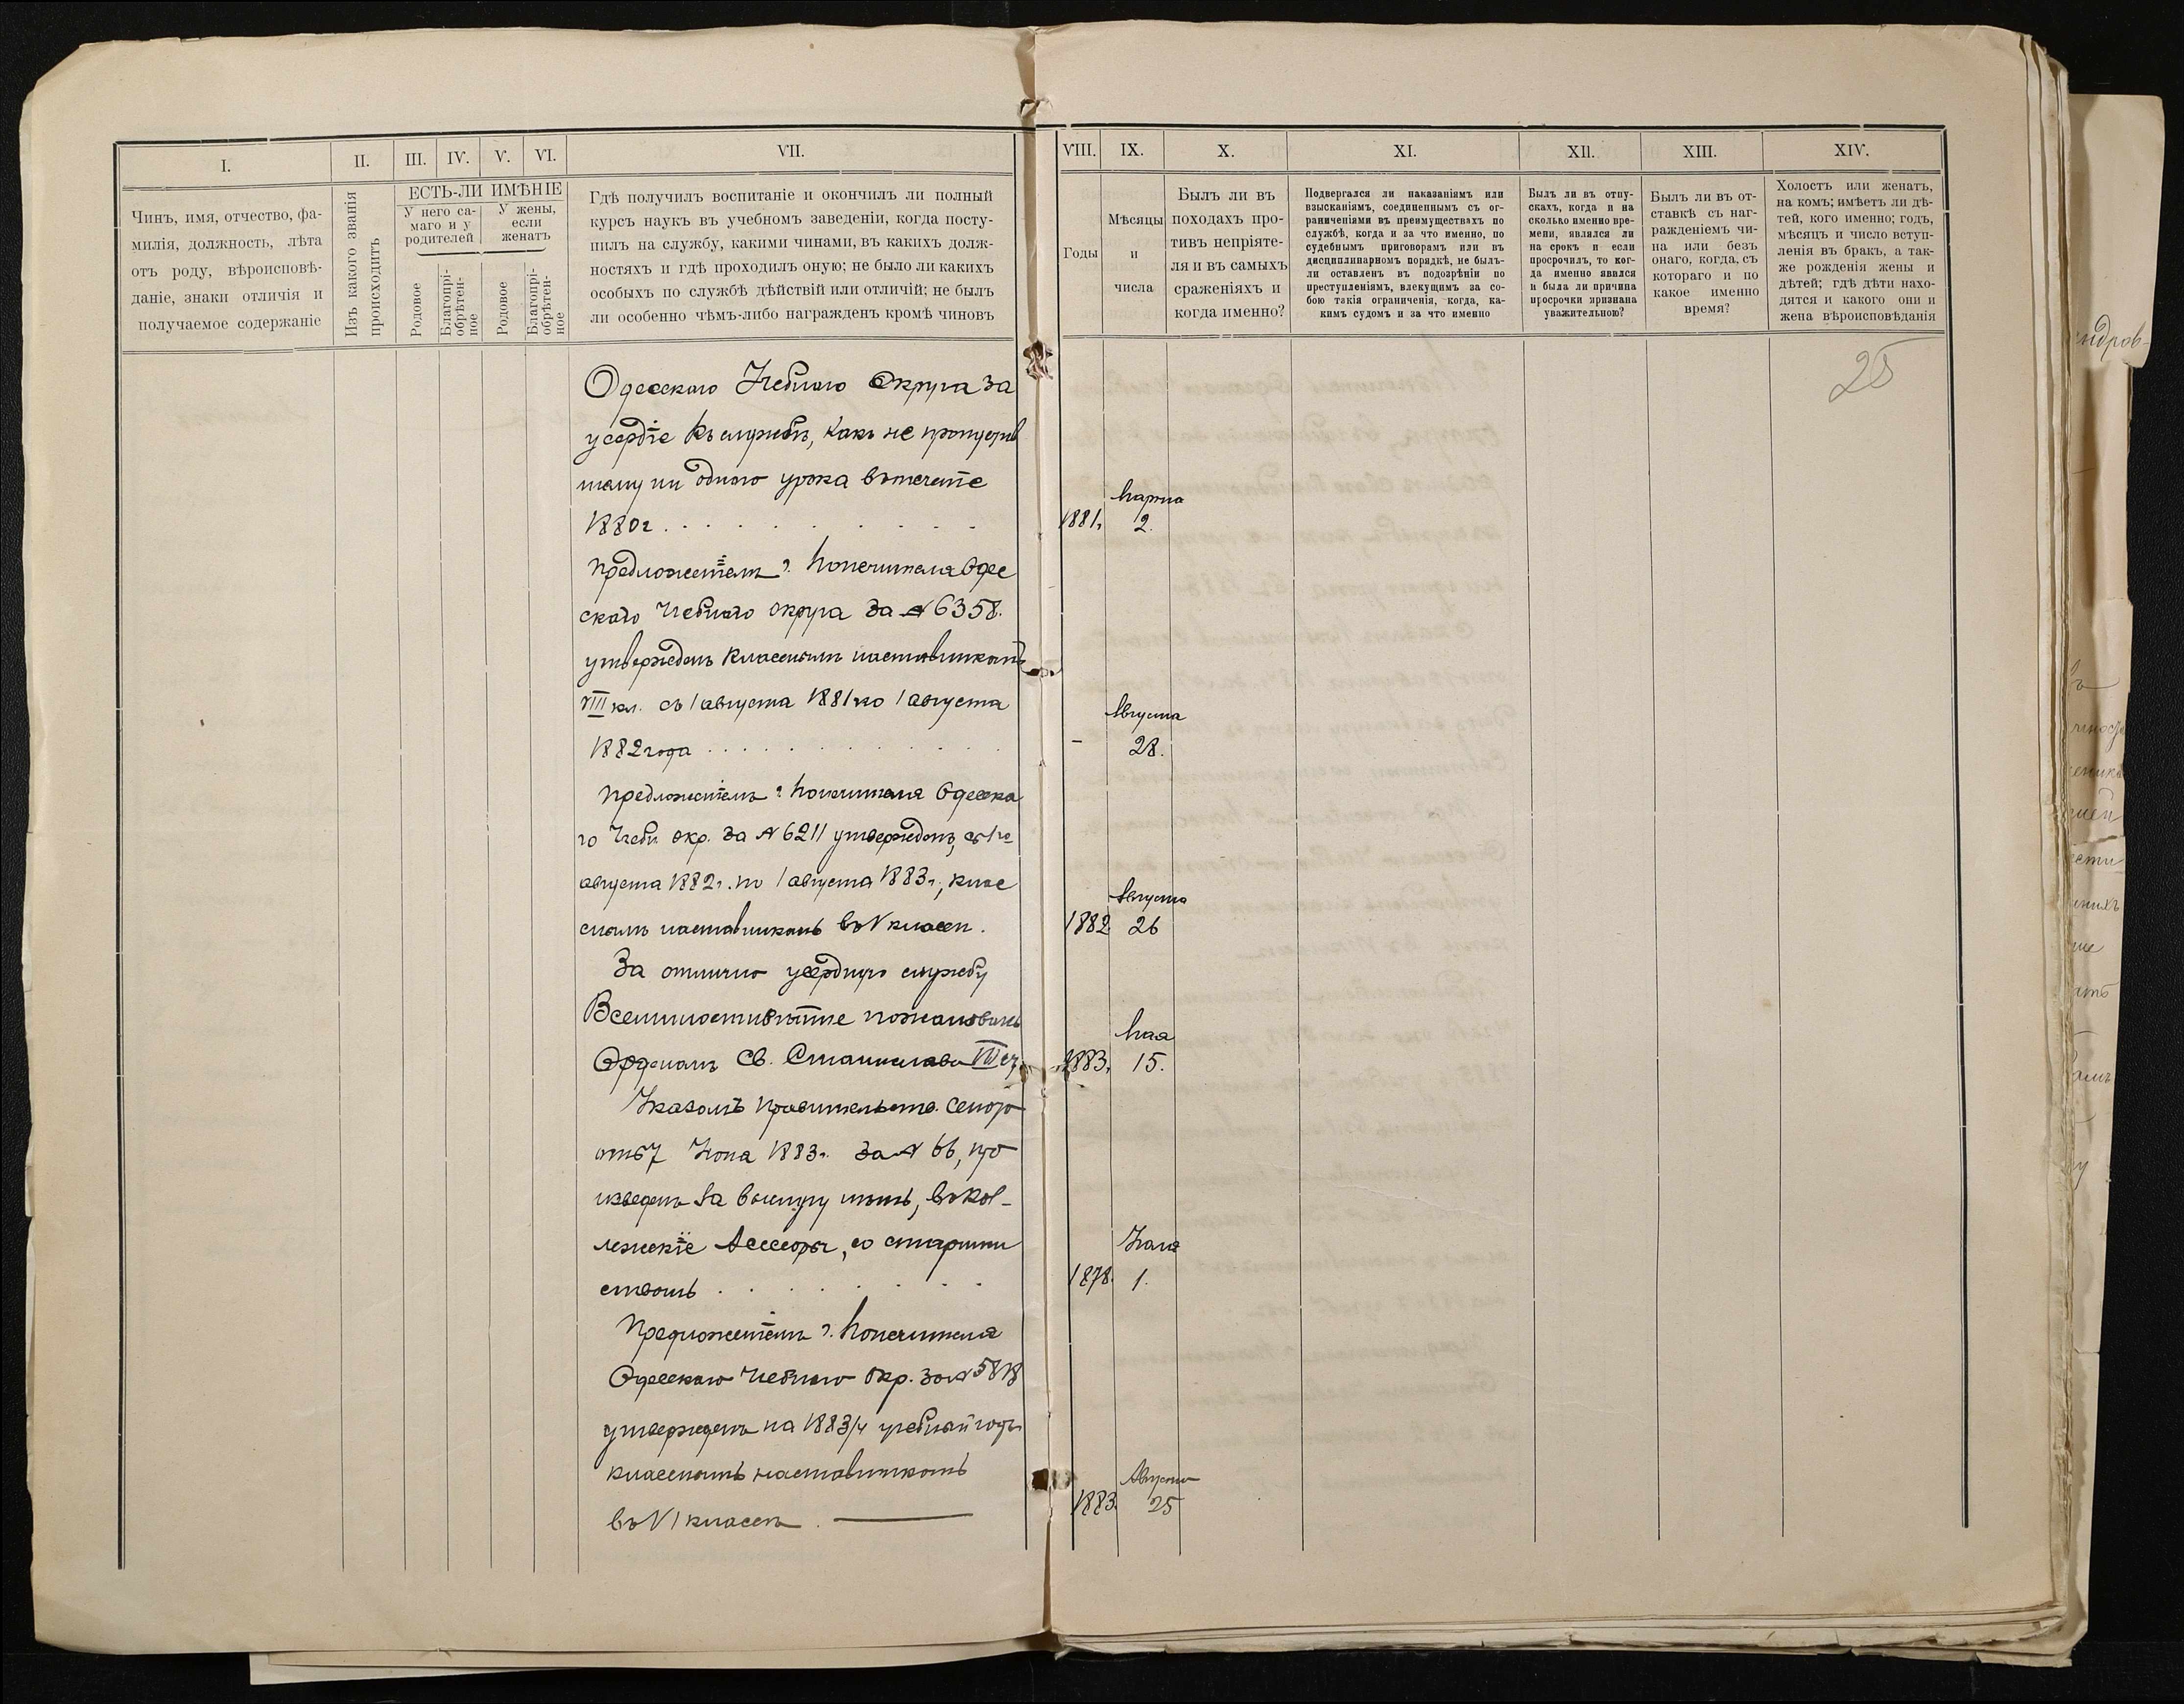 I.
II.
III.
IV.
V.
VI.
VII.
Чинъ, имя, отчество, фа-
милія, должность, лѣта
отъ роду, вѣроисповѣ-
даніе, знаки отличія и
получаемое содержаніе
Изъ какого званія
происходитъ
ЕСТЬ-ЛИ ИМѢНІЕ
У него са-
маго и у
родителей
У жены,
если
женатъ
Родовое
Благопрі-
обрѣтен-
ное
Родовое
Благопрі-
обрѣтен-
ное
Гдѣ получилъ воспитаніе и окончилъ ли полный
курсъ наукъ въ учебномъ заведеніи, когда посту-
пилъ на службу, какими чинами, въ какихъ долж-
ностяхъ и гдѣ проходилъ оную; не было ли какихъ
особыхъ по службѣ дѣйствій или отличій; не былъ
ли особенно чѣмъ-либо награжденъ кромѣ чиновъ
Одесскаго Учебнаго Округа за
усердіе къ службѣ, какъ не пропустив
шему ни одного урока въ теченіе
1880 г.
Предложеніемъ г. Попечителя Одес
скаго Учебнаго Округа за № 6358.
утвержденъ класснымъ наставникомъ
VIII кл. съ 1 августа 1881 по 1 августа
1882 года
Предложеніемъ г. Попечителя Одесска
го Учебн. окр. за № 6211 утвержденъ, съ 1го
августа 1882 г. по 1 августа 1883 г., клас
снымъ наставникомъ въ V классѣ.
За отлично усердную службу
Всемилостивѣйше пожалованъ
Орденомъ Св. Станислава III ст.
Указомъ Правительств. Сената
отъ 7 Іюня 1883 г. за № 66, про
изведенъ за выслугу лѣтъ, въ Кол-
лежскіе Ассесоры, со старшин
ствомъ
Предложеніемъ г. Попечителя
Одесскаго Учебнаго Окр. за № 5818
утвержденъ на 1883/4 учебный годъ
класснымъ наставникомъ
въ VI классѣ.
VIII.
IX.
X.
XI.
XII.
XIII.
XIV.
Годы
Мѣсяцы
и
числа
Былъ ли въ
походахъ про-
тивъ непріяте-
ля и въ самыхъ
сраженіяхъ и
когда именно?
Подвергался ли наказаніямъ или
взысканіямъ, соединеннымъ съ ог-
раниченіями въ преимуществахъ по
службѣ, когда и за что именно, по
судебнымъ приговорамъ или въ
дисциплинарномъ порядкѣ, не былъ-
ли оставленъ въ подозрѣніи по
преступленіямъ, влекущимъ за со-
бою такія ограниченія, когда, ка-
кимъ судомъ и за что именно
Былъ ли въ отпу-
скахъ, когда и на
сколько именно вре-
мени, являлся ли
на срокъ и если
просрочилъ, то ког-
да именно явился
и была ли причина
просрочки признана
уважительною?
Былъ ли въ от-
ставкѣ съ наг-
ражденіемъ чи-
на или безъ
онаго, когда, съ
котораго и по
какое именно
время?
Холостъ или женатъ,
на комъ; имѣетъ ли дѣ-
тей, кого именно; годъ,
мѣсяцъ и число вступ-
ленія въ бракъ, а так-
же рожденія жены и
дѣтей; гдѣ дѣти нахо-
дятся и какого они и
жена вѣроисповѣданія
25
Марта
1881, 2.
Августа
– 28.
Августа
1882 26
Мая
1883, 15.
Іюня
1878. 1.
Августа
1883. 25